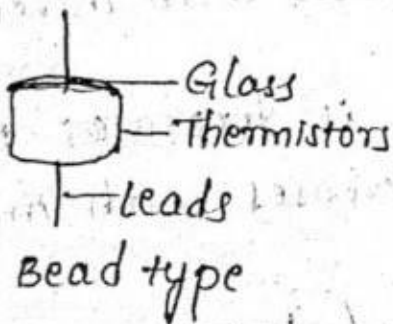 Glass
Thermistors
Leads
Bead type